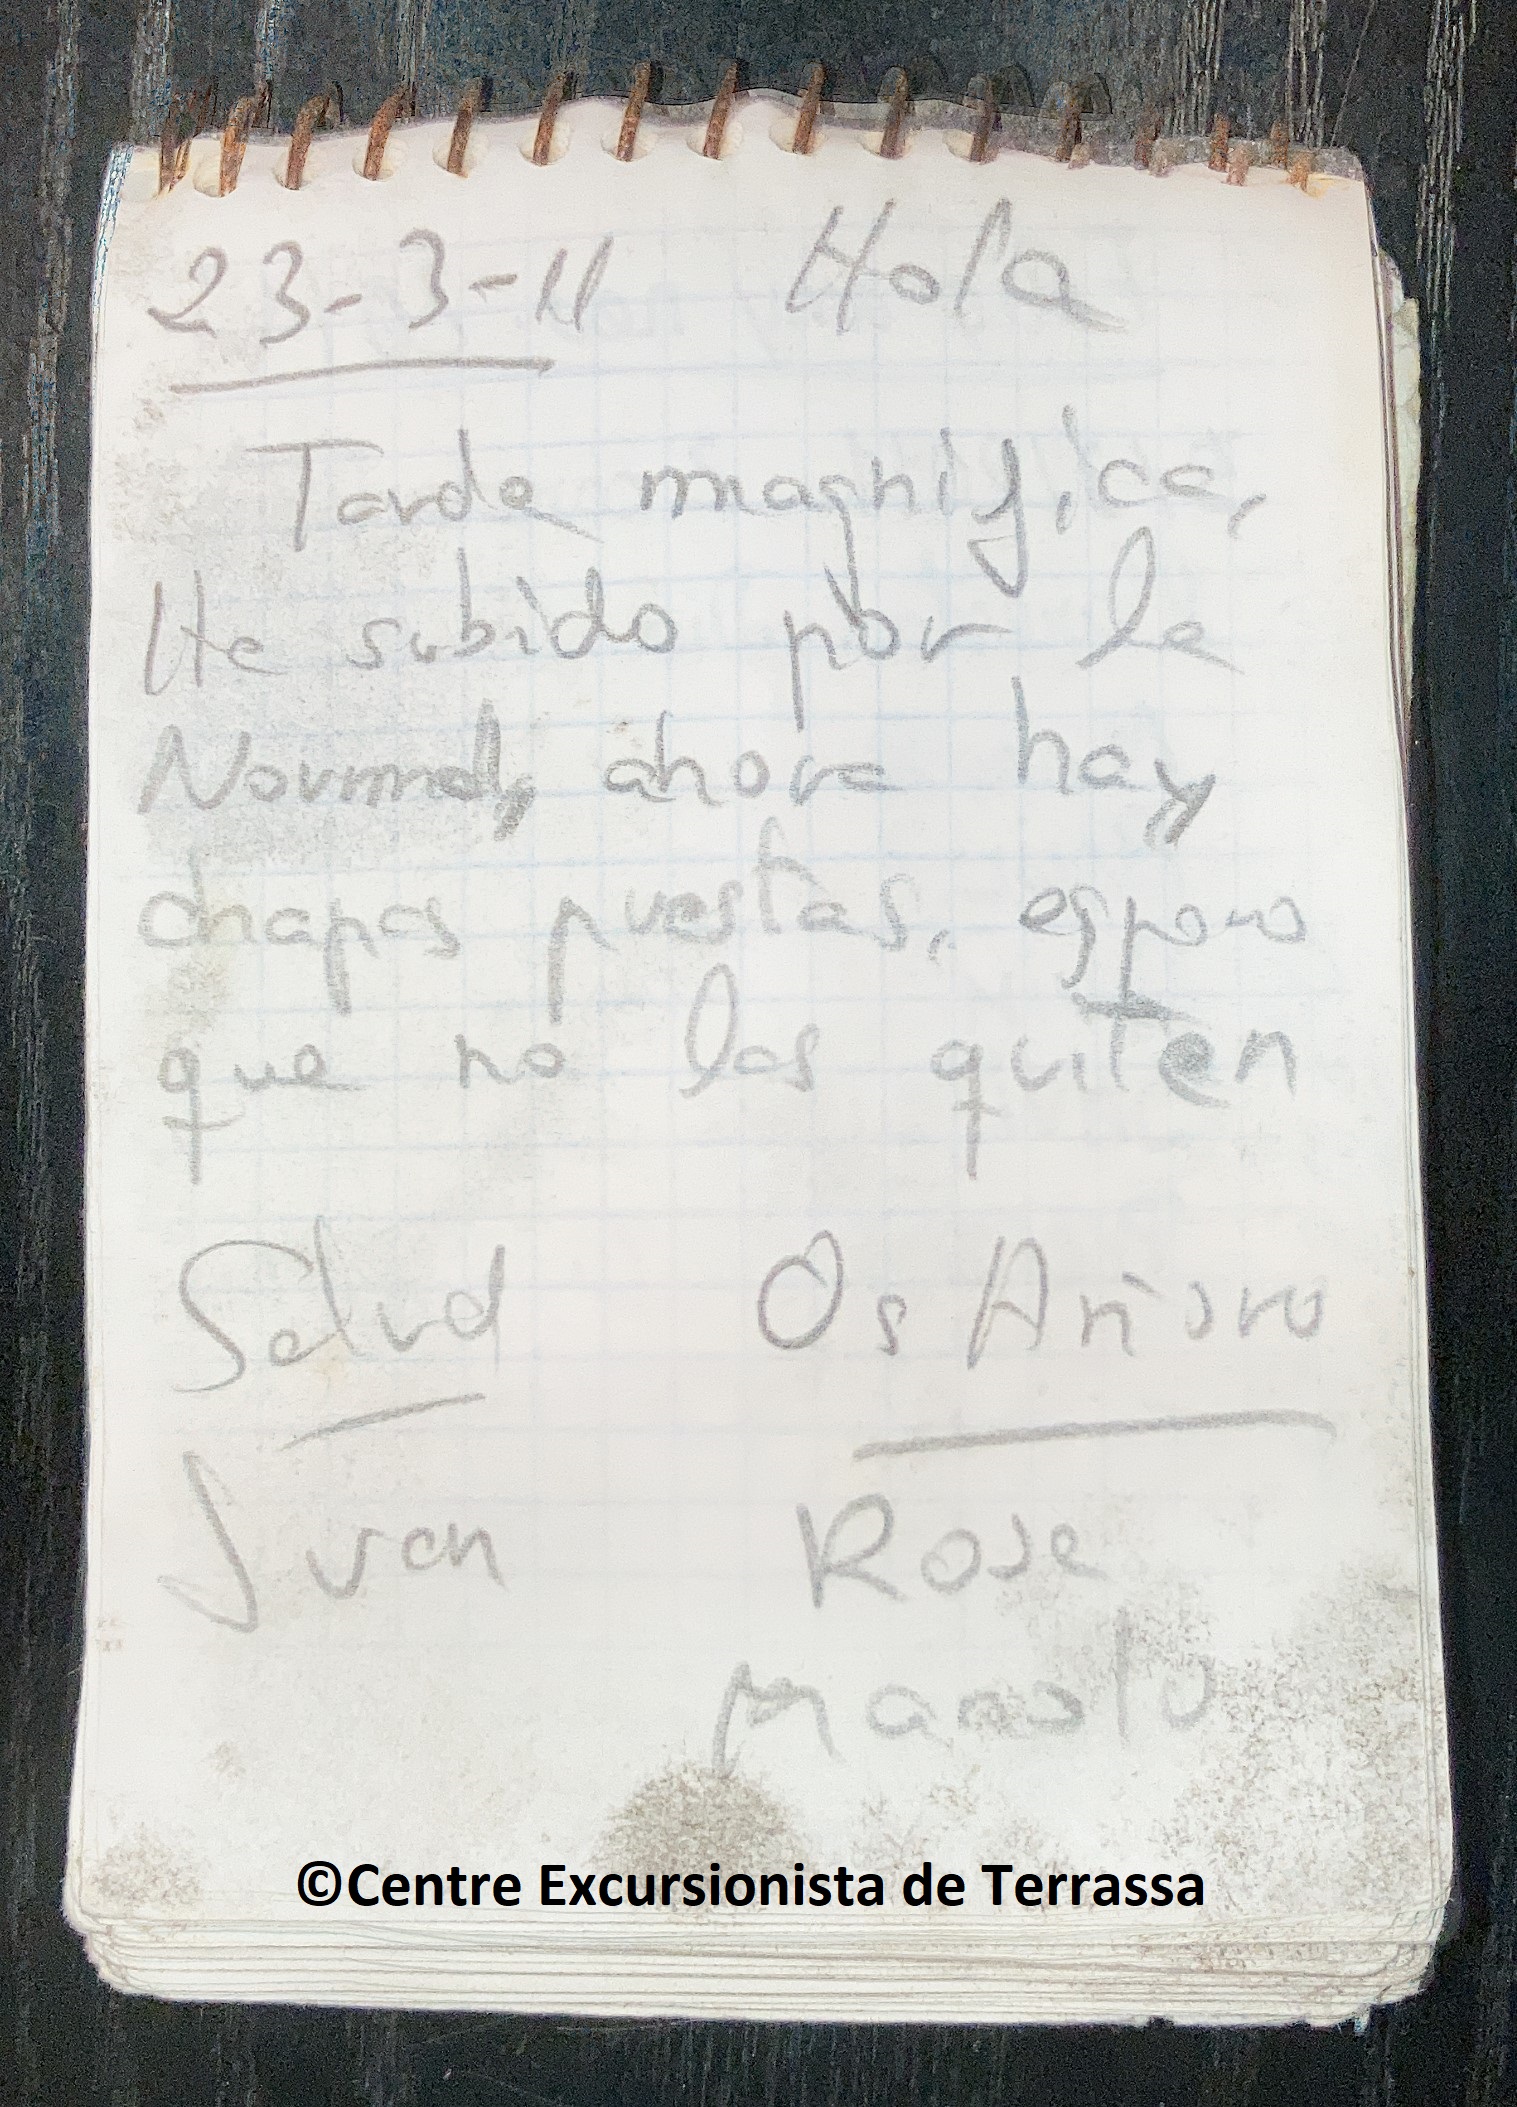 23-3-11 Hola
Tarde magnifica,
He subido por la
Normal, ahora hay
chapas puestas, espero
que no las quiten
Salud Os Añoro
Juan Rosa
Manolo
©Centre Excursionista de Terrassa